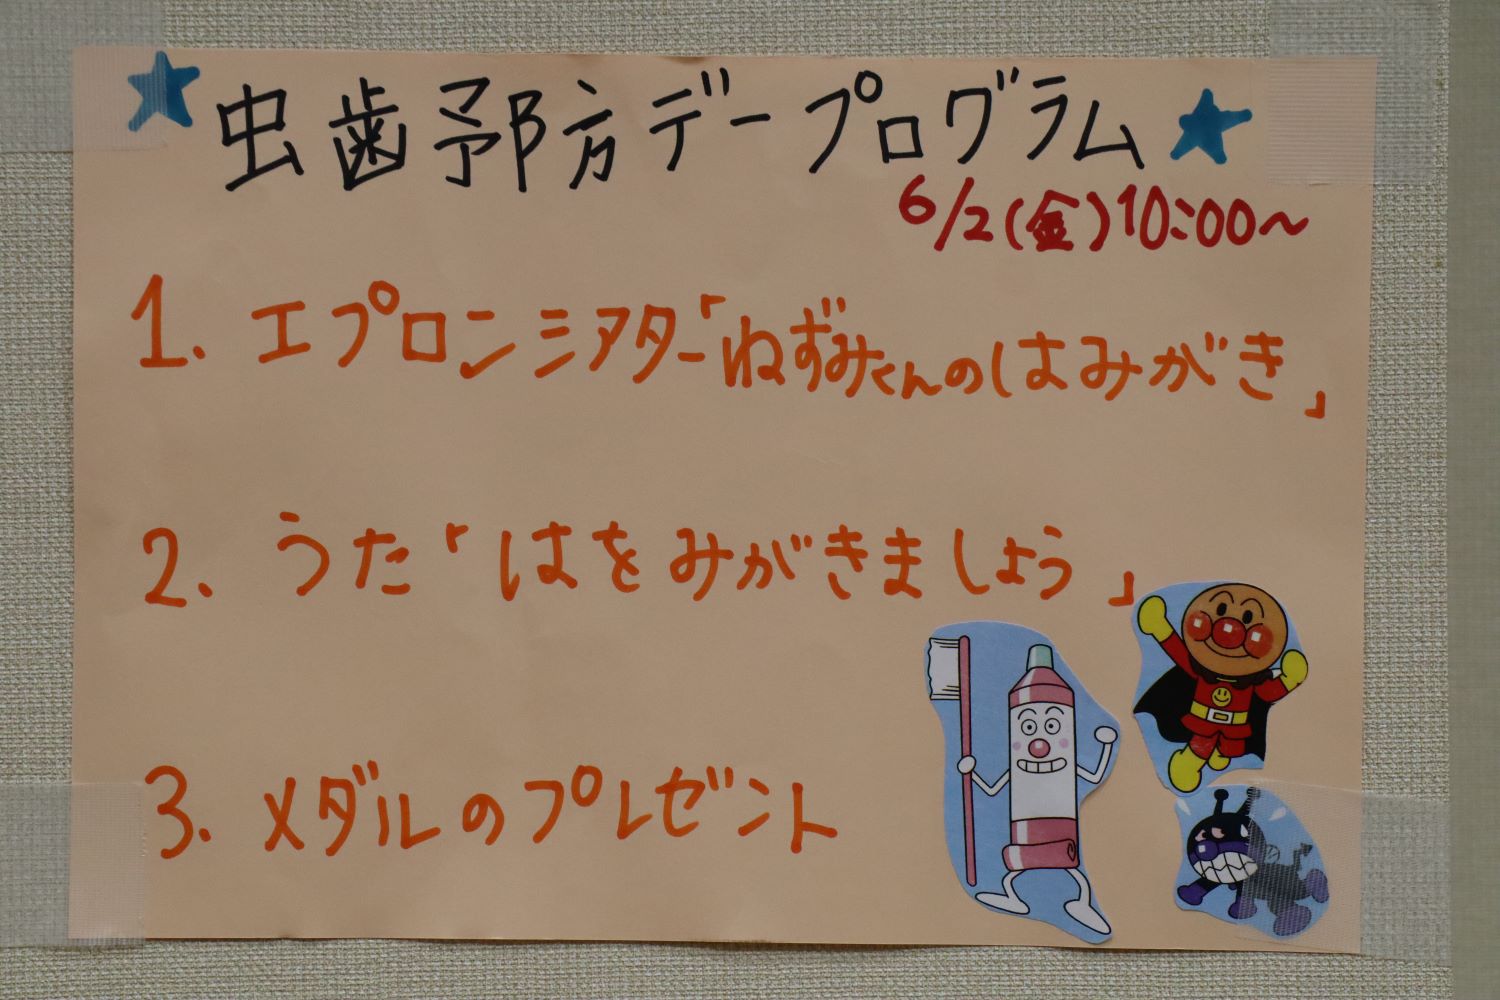 虫歯予防デープログラム
6/2(金)10:00〜
1. エプロンシアター「ねずみくんのはみがき」
2. うた「はをみがきましょう」
3. メダルのプレゼント